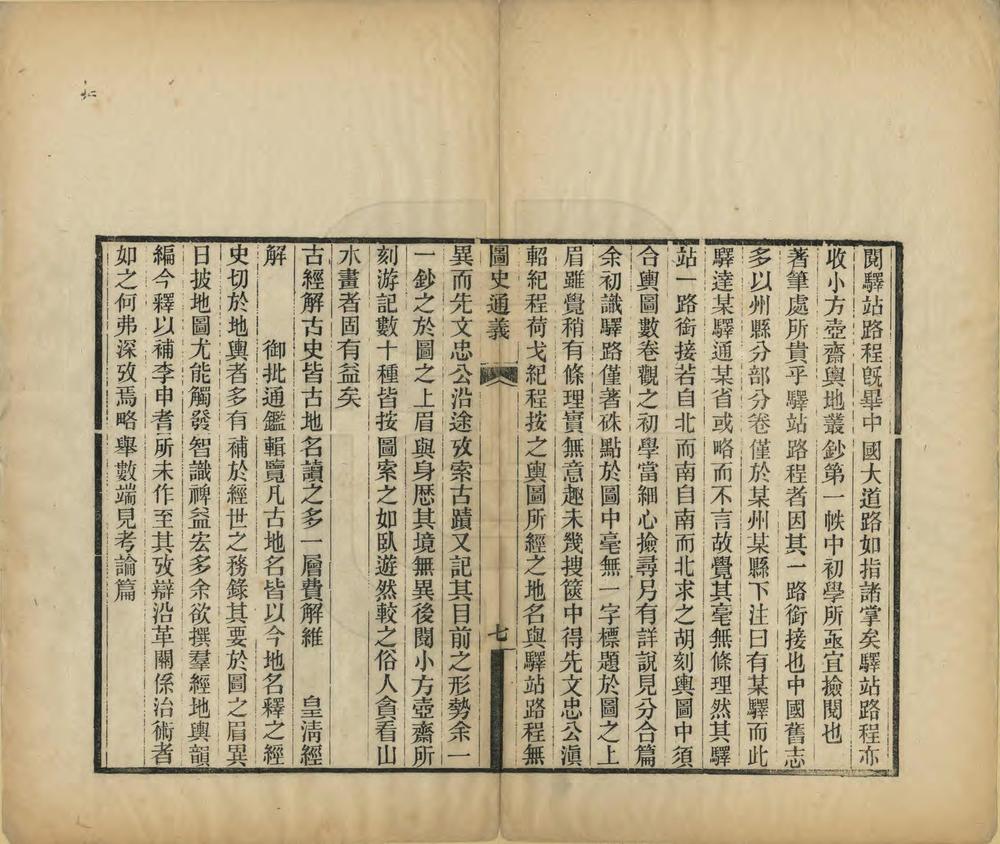 閱驛站路程旣畢中國大道路如指諸掌矣驛站路程亦
收小方壺齋輿地叢鈔第一帙中初學所亟宜撿閱也
著筆處所貴乎驛站路程者因其一路銜接也中國舊志
多以州縣分部分卷僅於某州某縣下注曰有某驛而此
驛達某驛通某省或略而不言故覺其毫無條理然其驛
站一路銜接若自北而南自南而北求之胡刻輿圖中須
合輿圖數卷觀之初學當細心撿尋另有詳說見分合篇
余初識驛路僅著硃點於圖中毫無一字標題於圖之上
眉雖覺稍有條理實無意趣未幾搜篋中得先文忠公滇
軺紀程荷戈紀程按之輿圖所經之地名與驛站路程無
圖史通義
七
異而先文忠公沿途攷索古蹟又記其目前之形勢余一
一鈔之於圖之上眉與身歷其境無異後閱小方壺齋所
刻游記數十種皆按圖索之如臥遊然較之俗人貪看山
水畫者固有益矣
古經解古史皆古地名讀之多一層費解維　皇淸經
解　御批通鑑輯覽凡古地名皆以今地名釋之經
史切於地輿者多有補於經世之務錄其要於圖之眉異
日披地圖尤能觸發智識裨益宏多余欲撰羣經地輿韻
編今釋以補李申耆所未作至其攷辯沿革關係治術者
如之何弗深攷焉略舉數端見考論篇